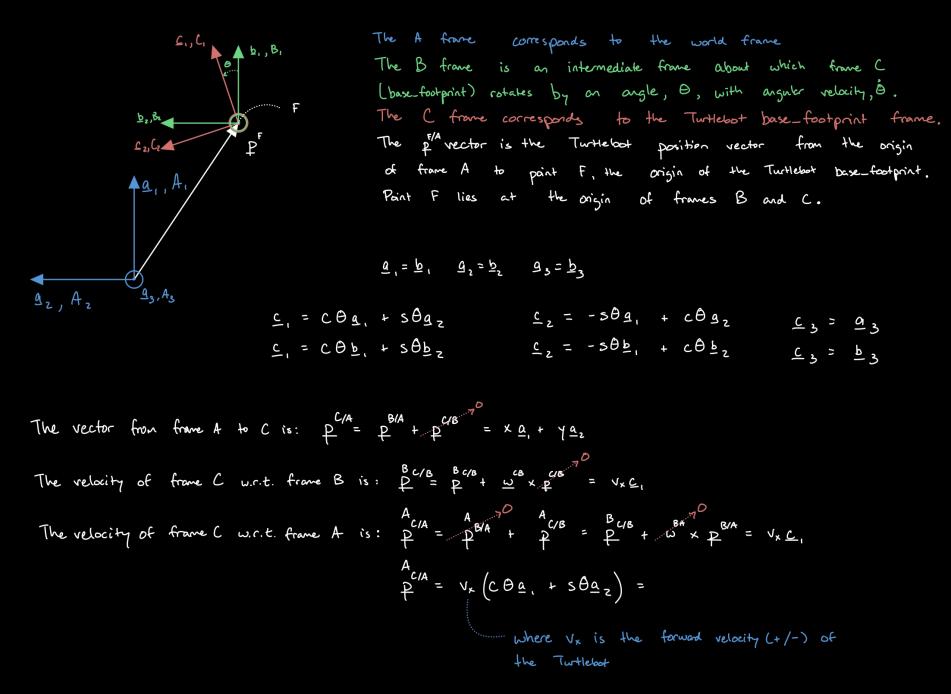 c₁, C₁
b₁, B₁
θ
F
b₂, B₂
c₂, C₂
F
p
a₁, A₁
a₂, A₂
a₃, A₃
The A frame corresponds to the world frame
The B frame is an intermediate frame about which frame C
(base_footprint) rotates by an angle, θ, with angular velocity, θ̇.
The C frame corresponds to the Turtlebot base_footprint frame.
The p^F/A vector is the Turtlebot position vector from the origin
of frame A to point F, the origin of the Turtlebot base_footprint.
Point F lies at the origin of frames B and C.
a₁ = b₁ a₂ = b₂ a₃ = b₃
c₁ = cθa₁ + sθa₂ c₂ = -sθa₁ + cθa₂ c₃ = a₃
c₁ = cθb₁ + sθb₂ c₂ = -sθb₁ + cθb₂ c₃ = b₃
The vector from frame A to C is: p^C/A = p^B/A + p^C/B → 0 = x a₁ + y a₂
The velocity of frame C w.r.t. frame B is: ^B p^C/B = ^B p^C/B + ω^CB × p^C/B → 0 = vₓ c₁
The velocity of frame C w.r.t. frame A is: ^A p^C/A = ^A p^B/A → 0 + ^A p^C/B = ^B p^C/B + ω^BA → 0 × p^B/A = vₓ c₁
^A p^C/A = vₓ (cθa₁ + sθa₂) =
where vₓ is the forward velocity (+/-) of
the Turtlebot